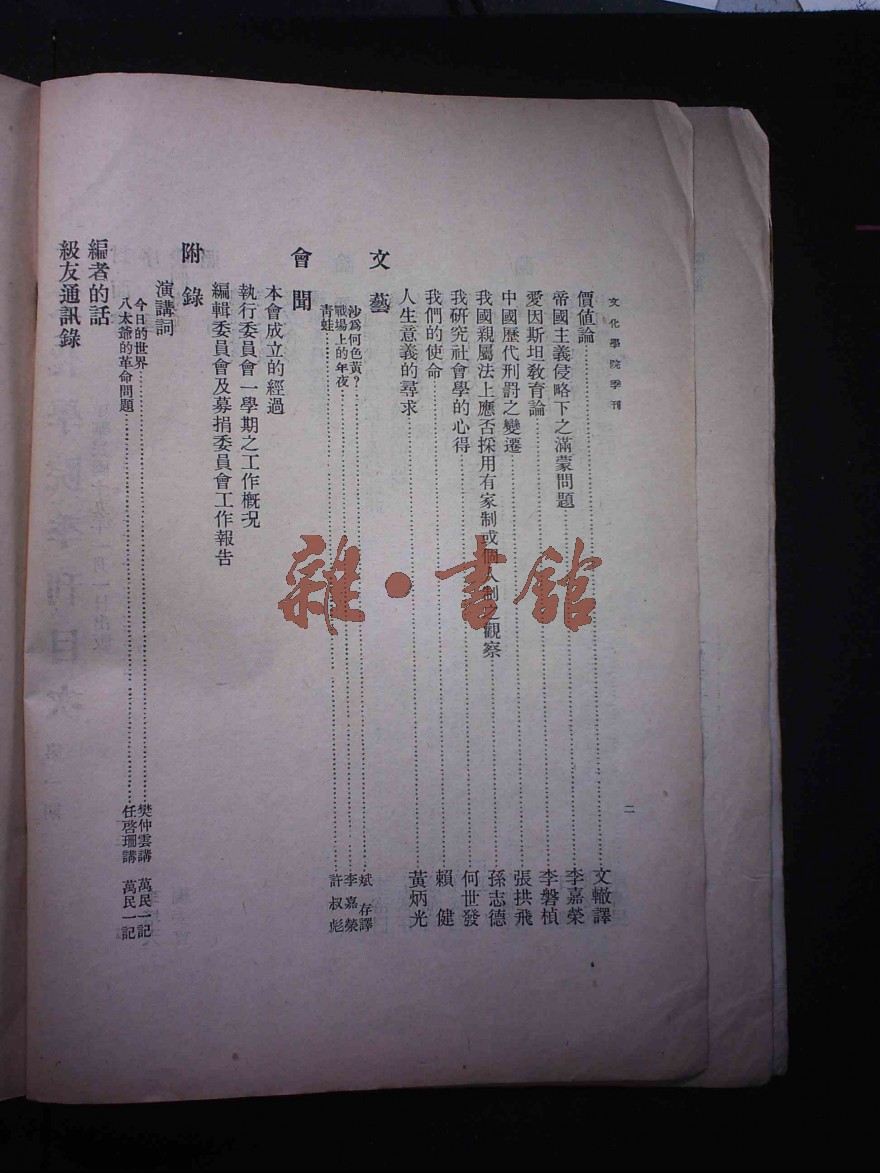 文化學院季刊
二
價值論……文轍譯
帝國主義侵略下之滿蒙問題……李嘉榮
愛因斯坦敎育論……李磐楨
中國歷代刑罰之變遷……張拱飛
我國親屬法上應否採用有家制或個人制之觀察……孫志德
我研究社會學的心得……何世發
我們的使命……賴健
人生意義的尋求……黃炳光
文藝
沙爲何色黃？……斌存譯
戰場上的年夜……李嘉榮
靑蛙……許叔彪
會聞
本會成立的經過
執行委員會一學期之工作槪况
編輯委員會及募捐委員會工作報告
附錄
演講詞
今日的世界……樊仲雲講 萬民一記
八太爺的革命問題……任啓珊講 萬民一記
編者的話
級友通訊錄
雜·書館